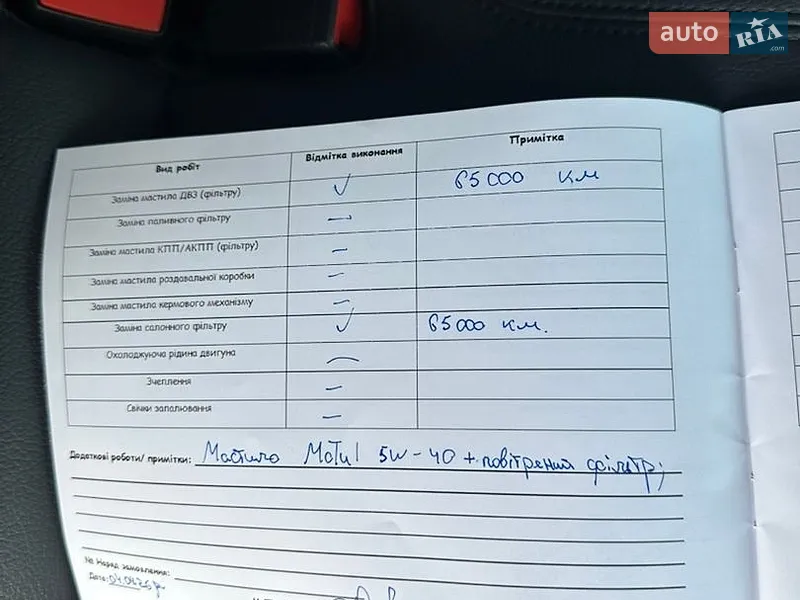 auto RIA.com
Вид робіт Відмітка виконання Примітка
Заміна мастила ДВЗ (фільтру) ✓ 65000 км
Заміна паливного фільтру —
Заміна мастила КПП/АКПП (фільтру) —
Заміна мастила роздавальної коробки —
Заміна мастила кермового механізму —
Заміна салонного фільтру ✓ 65000 км.
Охолоджуюча рідина двигуна —
Зчеплення —
Свічки запалювання —
Додаткові роботи/ примітки: Мастило Motul 5W-40 + повітряний фільтр;
№ Наряд замовлення:
Дата: